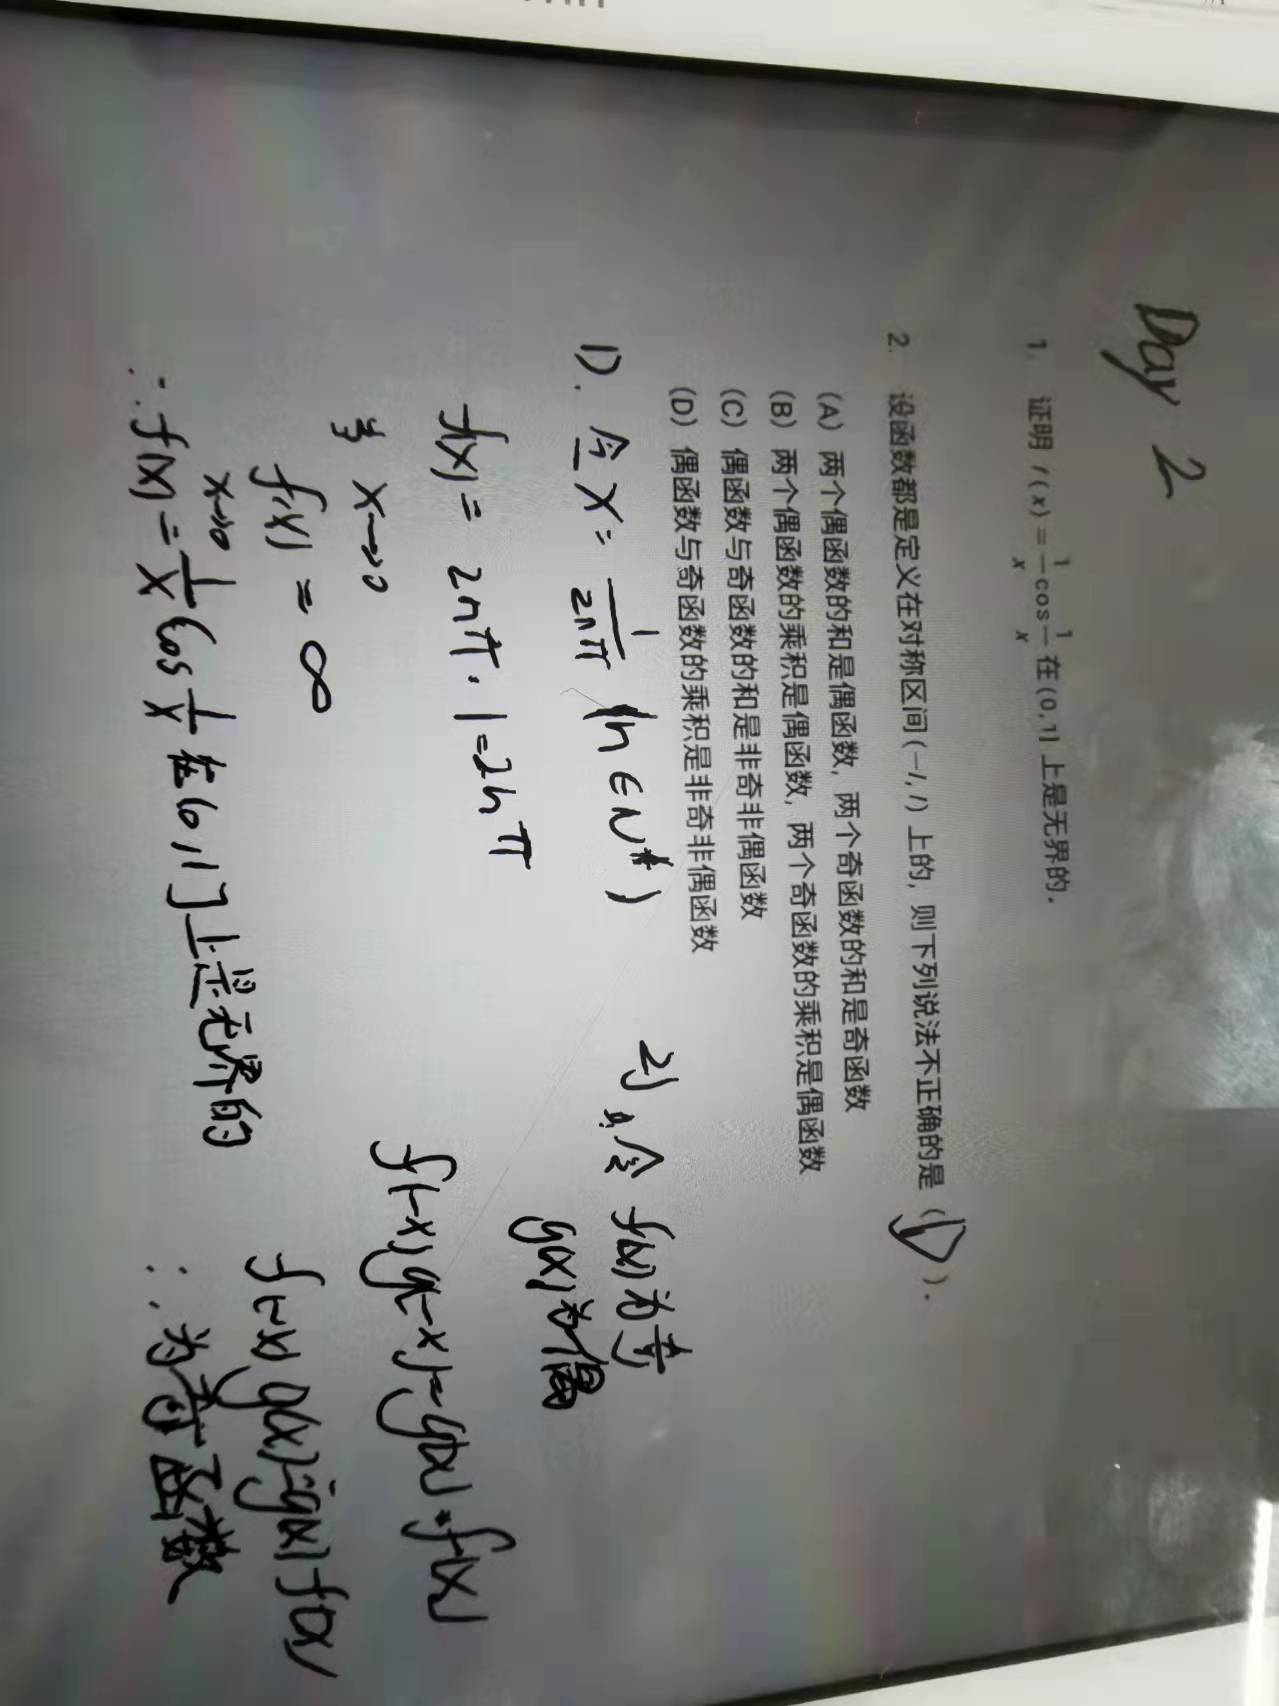 Day 2
1. 证明 f(x)=1/x cos 1/x 在(0,1]上是无界的.
2. 设函数都是定义在对称区间(-l,l)上的, 则下列说法不正确的是(D).
(A) 两个偶函数的和是偶函数, 两个奇函数的和是奇函数
(B) 两个偶函数的乘积是偶函数, 两个奇函数的乘积是偶函数
(C) 偶函数与奇函数的和是非奇非偶函数
(D) 偶函数与奇函数的乘积是非奇非偶函数
1). 令 x= 1/2nπ (n∈N*)
f(x)= 2nπ·1=2nπ
当 x→0
f(x) = ∞
x→0
∴f(x)=1/x cos 1/x 在(0,1]上是无界的
2) 令 f(x)为奇
g(x)为偶
f(-x)g(-x)=g(x)·f(x)
f(-x)g(x)=-g(x)f(x)
∴为奇函数